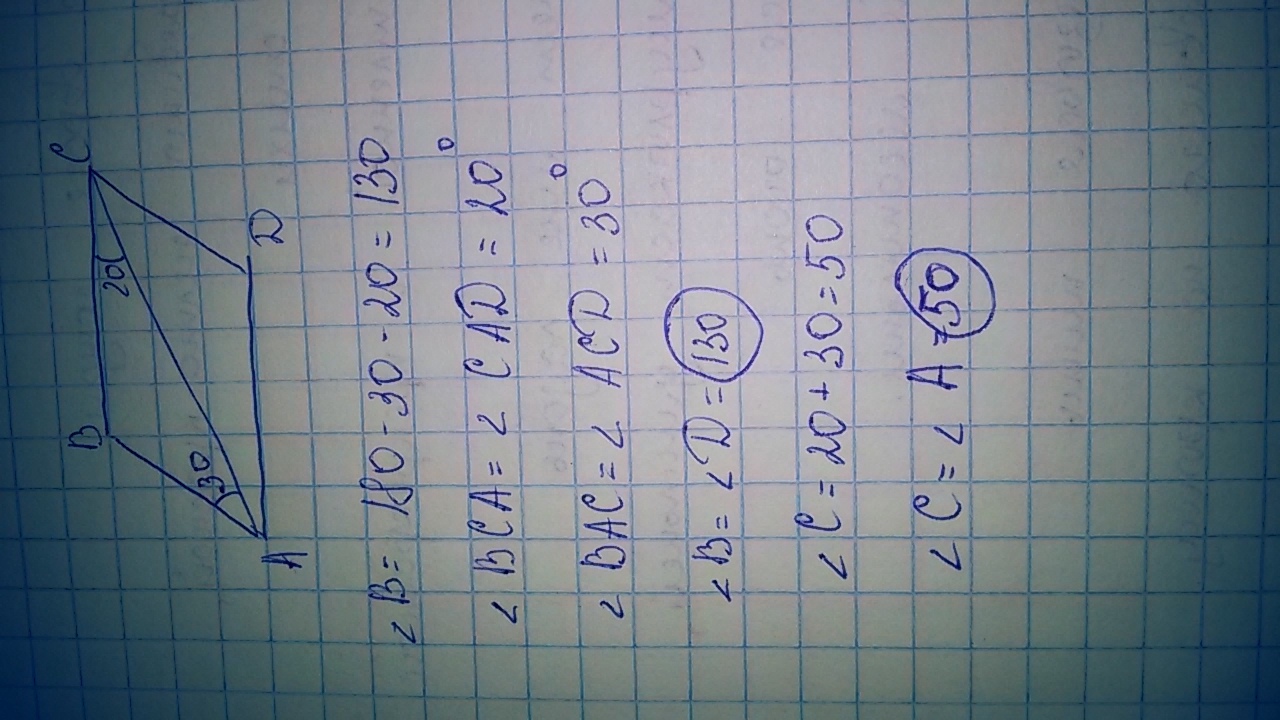 B
C
20
30
A
D
∠B= 180-30-20=130
∠BCA=∠CAD=20°
∠BAC=∠ACD=30°
∠B=∠D=130
∠C=20+30=50
∠C=∠A=50